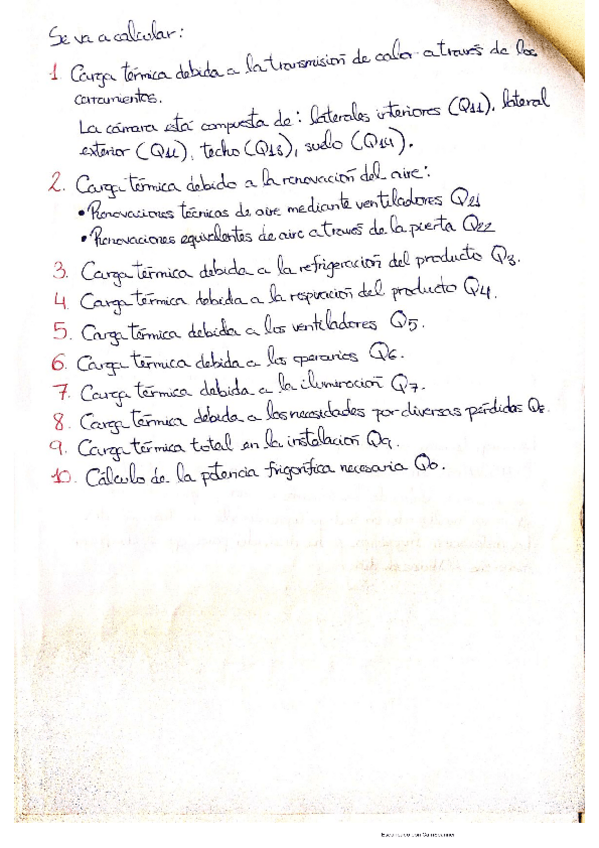 Se va a calcular:
1 Carga térmica debida a la transmisión de calor a través de los
cerramientos.
La cámara está compuesta de: laterales interiores (Q11), lateral
exterior (Q12), techo (Q13), suelo (Q14).
2. Carga térmica debido a la renovación del aire:
• Renovaciones técnicas de aire mediante ventiladores Q21
• Renovaciones equivalentes de aire a través de la puerta Q22
3. Carga térmica debida a la refrigeración del producto Q3.
4. Carga térmica debida a la respiración del producto Q4.
5. Carga térmica debida a los ventiladores Q5.
6. Carga térmica debida a los operarios Q6.
7. Carga térmica debida a la iluminación Q7.
8. Carga térmica debida a las necesidades por diversas pérdidas Q8.
9. Carga térmica total en la instalación Q9.
10. Cálculo de la potencia frigorífica necesaria Q0.
Escaneado con CamScanner